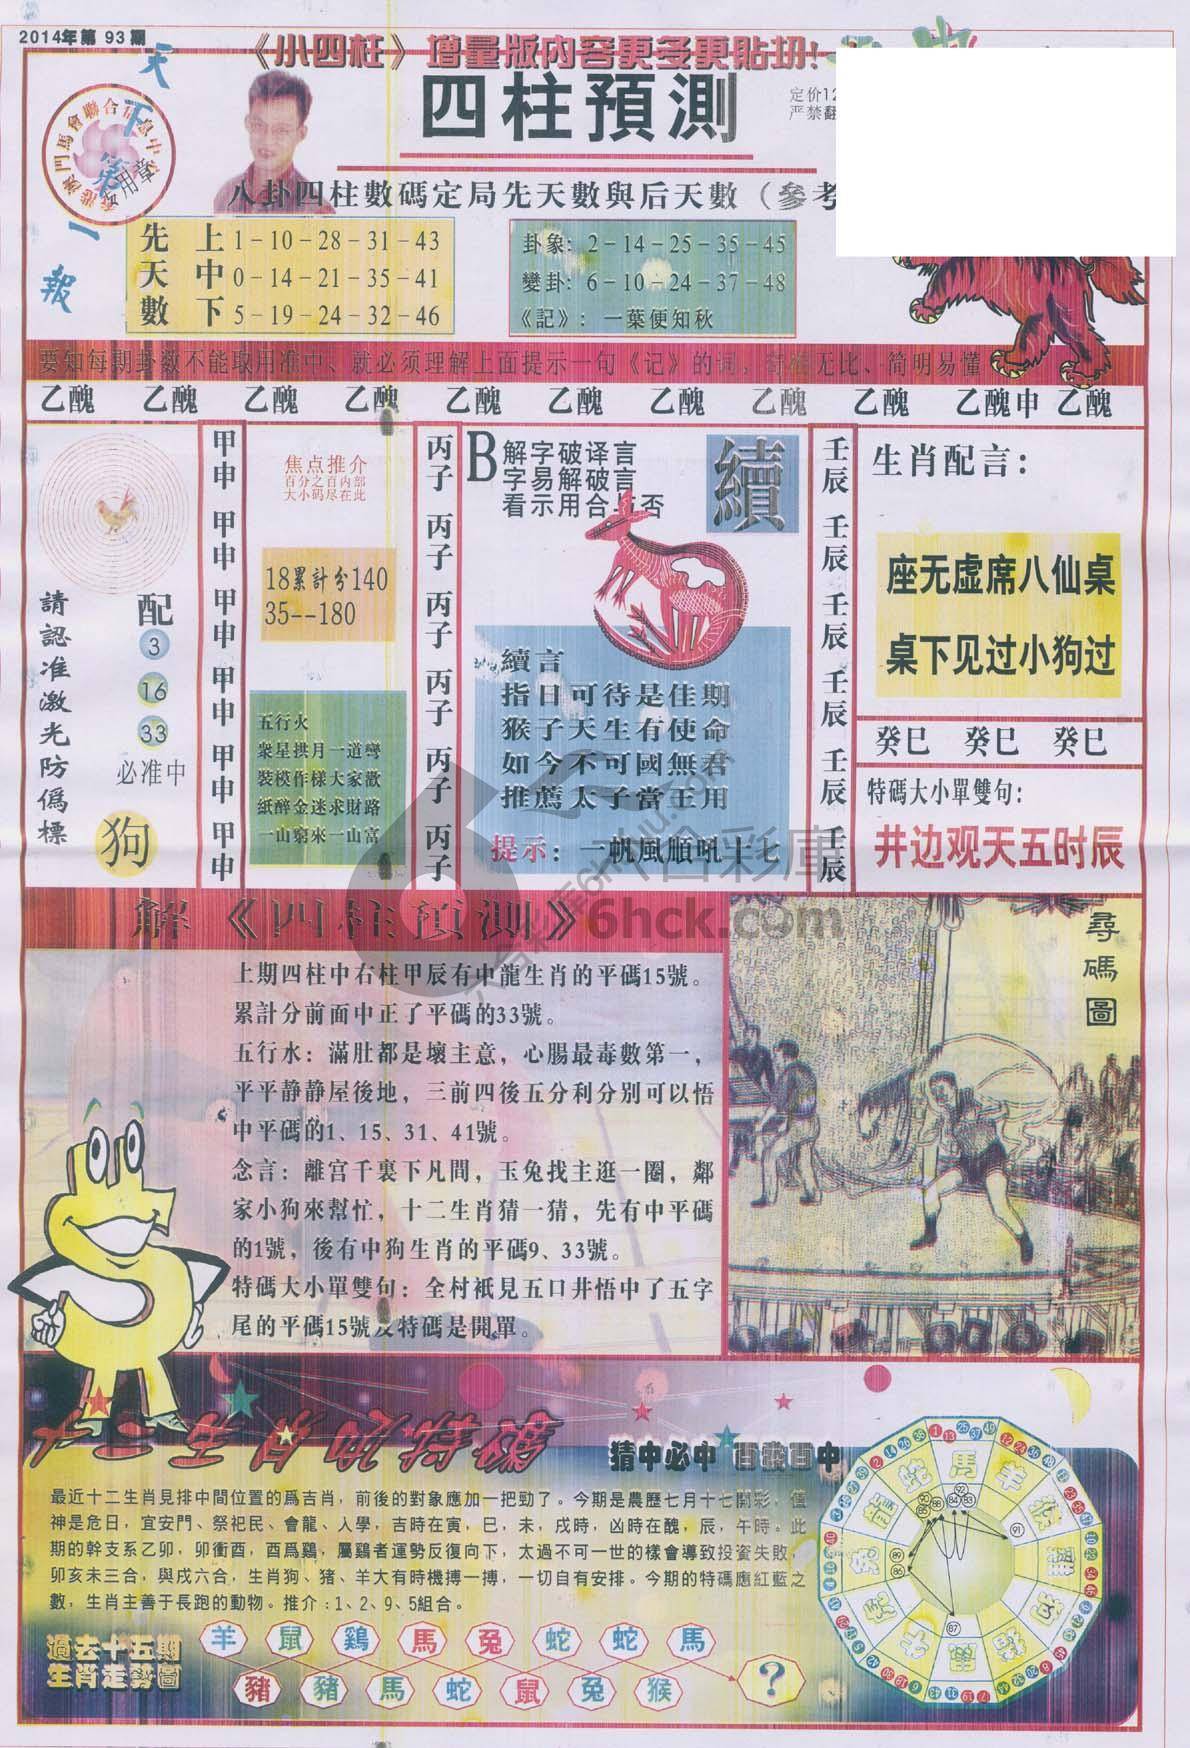 2014年第 93 期
《小四柱》增量版內容更多更貼切!
天下第一報
四柱預測
定价12
严禁翻
八卦四柱數碼定局先天數與后天數（參考
先天數
上 1－10－28－31－43
中 0－14－21－35－41
下 5－19－24－32－46
卦象: 2－14－25－35－45
變卦: 6－10－24－37－48
《記》: 一葉便知秋
要知每期卦数不能取用准中、就必须理解上面提示一句《记》的词，
无比、简明易懂
乙醜 乙醜 乙醜 乙醜 乙醜 乙醜 乙醜 乙醜 乙醜 乙醜申 乙醜
請認准激光防僞標
配
3
16
33
必准中
狗
甲申 甲申 甲申 甲申 甲申 甲申
焦点推介
百分之百内部
大小码尽在此
18累計分140
35--180
五行火
衆星拱月一道彎
裝模作樣大家歡
紙醉金迷求財路
一山窮來一山富
丙子 丙子 丙子 丙子 丙子 丙子
B 解字破译言
字易解破言
看示用合与否
續
續言
指日可待是佳期
猴子天生有使命
如今不可國無君
推薦太子當王用
提示：一帆風順吼十七
壬辰 壬辰 壬辰 壬辰 壬辰 壬辰
生肖配言：
座无虚席八仙桌
桌下见过小狗过
癸巳 癸巳 癸巳
特碼大小單雙句：
井边观天五时辰
六合彩庫
6hck.com
解《四柱預測》
上期四柱中右柱甲辰有中龍生肖的平碼15號。
累計分前面中正了平碼的33號。
五行水：滿肚都是壞主意，心腸最毒數第一，
平平静静屋後地，三前四後五分利分別可以悟
中平碼的1、15、31、41號。
念言：離宫千裏下凡間，玉兔找主逛一圈，鄰
家小狗來幫忙，十二生肖猜一猜，先有中平碼
的1號，後有中狗生肖的平碼9、33號。
特碼大小單雙句：全村衹見五口井悟中了五字
尾的平碼15號及特碼是開單。
尋碼圖
猜中必中 百發百中
最近十二生肖見排中間位置的爲吉肖，前後的對象應加一把勁了。今期是農歷七月十七開彩，值
神是危日，宜安門、祭祀民、會龍、人學，吉時在寅，巳，未，戌時，凶時在醜，辰，午時。此
期的幹支系乙卯，卯衝酉，酉爲鷄，屬鷄者運勢反復向下，太過不可一世的樣會導致投资失敗，
卯亥未三合，與戌六合，生肖狗、猪、羊大有時機搏一搏，一切自有安排。今期的特碼應紅藍之
數，生肖主善于長跑的動物。推介：1、2、9、5組合。
過去十五期
生肖走勢圖
羊 鼠 鷄 馬 兔 蛇 蛇 馬
豬 豬 馬 蛇 鼠 兔 猴 ?